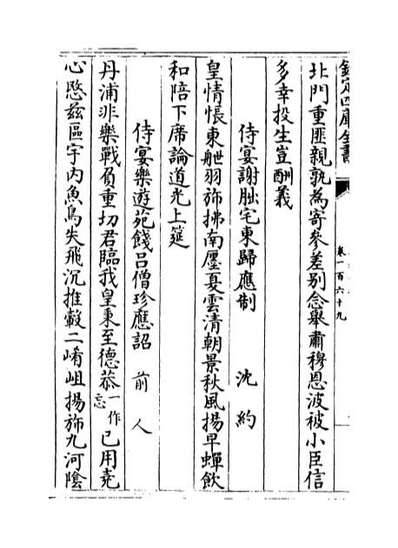 欽定四庫全書
卷一百六十九
北門重匪親孰為寄參差別念舉肅穆恩波被小臣信
多幸投生豈酬義
侍宴謝朏宅東歸應制 沈約
皇情悵東舭羽斾拂南㕓夏雲清朝景秋風揚早蟬飲
和陪下席論道光上筵
侍宴樂遊苑餞呂僧珍應詔 前人
丹浦非樂戰負重切君臨我皇秉至德恭一作忘已用堯
心愍茲區宇內魚鳥失飛沉推轂二崤岨揚斾九河陰